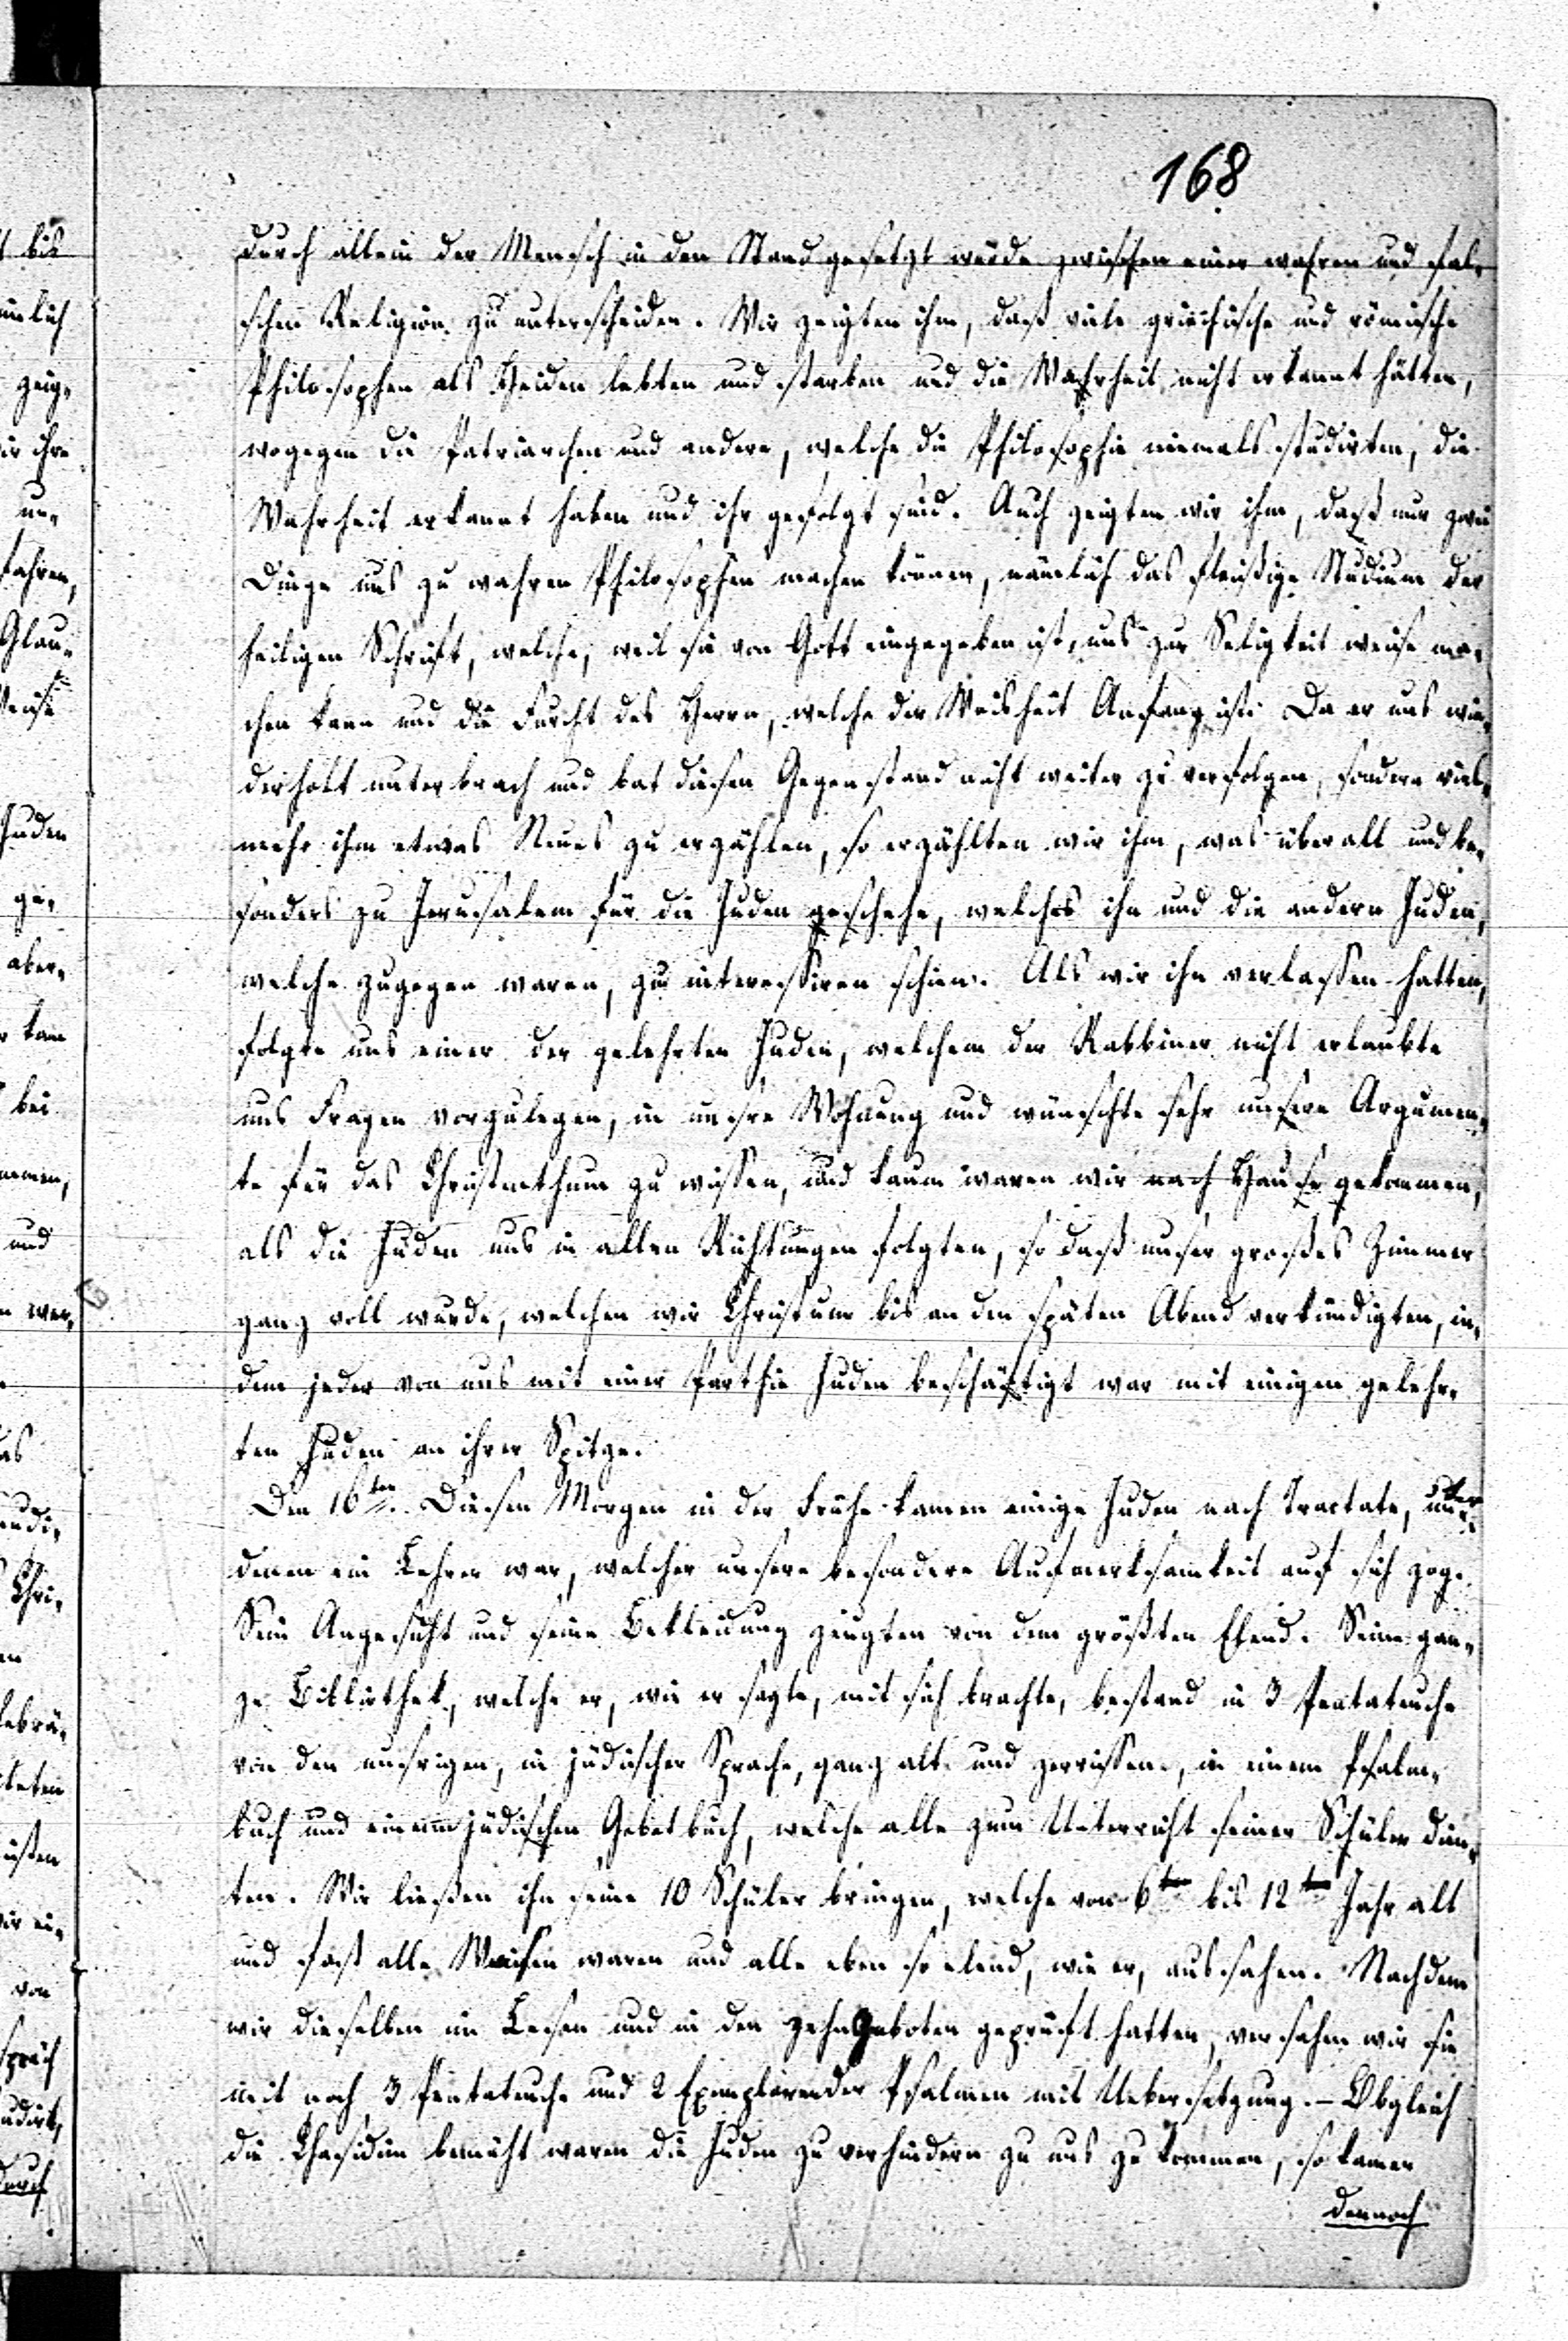 168
durch allein der Mensch in den Stand gesetzt würde zwischen einer wahren und fal-
schen Religion zu unterscheiden. Wir zeigten ihm, daß viele griechische und römische
Philosophen als Heiden lebten und starben und die Wahrheit nicht erkannt hätten,
wogegen die Patriarchen und andere, welche die Philosophie niemals studirten, die
Wahrheit erkannt haben und ihr gefolgt sind. Auch zeigten wir ihm, daß nur zwei
Dinge uns zu wahren Philosophen machen können, nämlich das fleißige Studium der
heiligen Schrift, welche, weil sie von Gott eingegeben ist, uns zur Seligkeit weise ma-
chen kann und die Furcht des Herrn, welche der Weisheit Anfang ist. Da er uns wie-
derholt unterbrach und bat diesen Gegenstand nicht weiter zu verfolgen, sondern viel-
mehr ihm etwas Neues zu erzählen, so erzählten wir ihm, was überall und be-
sonders zu Jerusalem für die Juden geschehe, welches ihn und die andern Juden,
welche zugegen waren, zu interessiren schien. Als wir ihn verlassen hatten,
folgte uns einer der gelehrten Juden, welchem der Rabbiner nicht erlaubte
uns Fragen vorzulegen, in unsre Wohnung und wünschte sehr unsere Argumen-
te für das Christenthum zu wissen, und kaum waren wir nach Hause gekommen,
als die Juden uns in allen Richtungen folgten, so daß unser großes Zimmer
ganz voll wurde, welchen wir Christum bis an den späten Abend verkündigten, in-
dem jeder von uns mit einer Parthie Juden beschäftigt war mit einigen gelehr-
ten Juden an ihrer Spitze.
Den 16ten. Diesen Morgen in der Frühe kamen einige Juden nach Tractate, unter
denen ein Lehrer war, welcher unsere besondere Aufmerksamkeit auf sich zog.
Sein Angesicht und seine Bekleidung zeugten von dem größten Elend. Seine gan-
ze Bibliothek, welche er, wie er sagte, mit sich brachte, bestand in 3 Pentateuche
von den unsrigen, in jüdischer Sprache, ganz alt und zerrissen, in einem Psalm-
buch und einem jüdischen Gebetbuch, welche alle zum Unterricht seiner Schüler dien-
ten. Wir ließen ihn seine 10 Schüler bringen, welche von 6ten bis 12ten Jahr alt
und fast alle Waisen waren und alle eben so elend, wie er, aussahen. Nachdem
wir dieselben im Lesen und in den zehn Geboten geprüft hatten, versahen wir sie
mit noch 3 Pentateuche und 2 Exemplaren der Psalmen mit Uebersetzung. – Obgleich
die Chasidim bemüht waren die Juden zu verhindern zu uns zu kommen, so kamen
dennoch